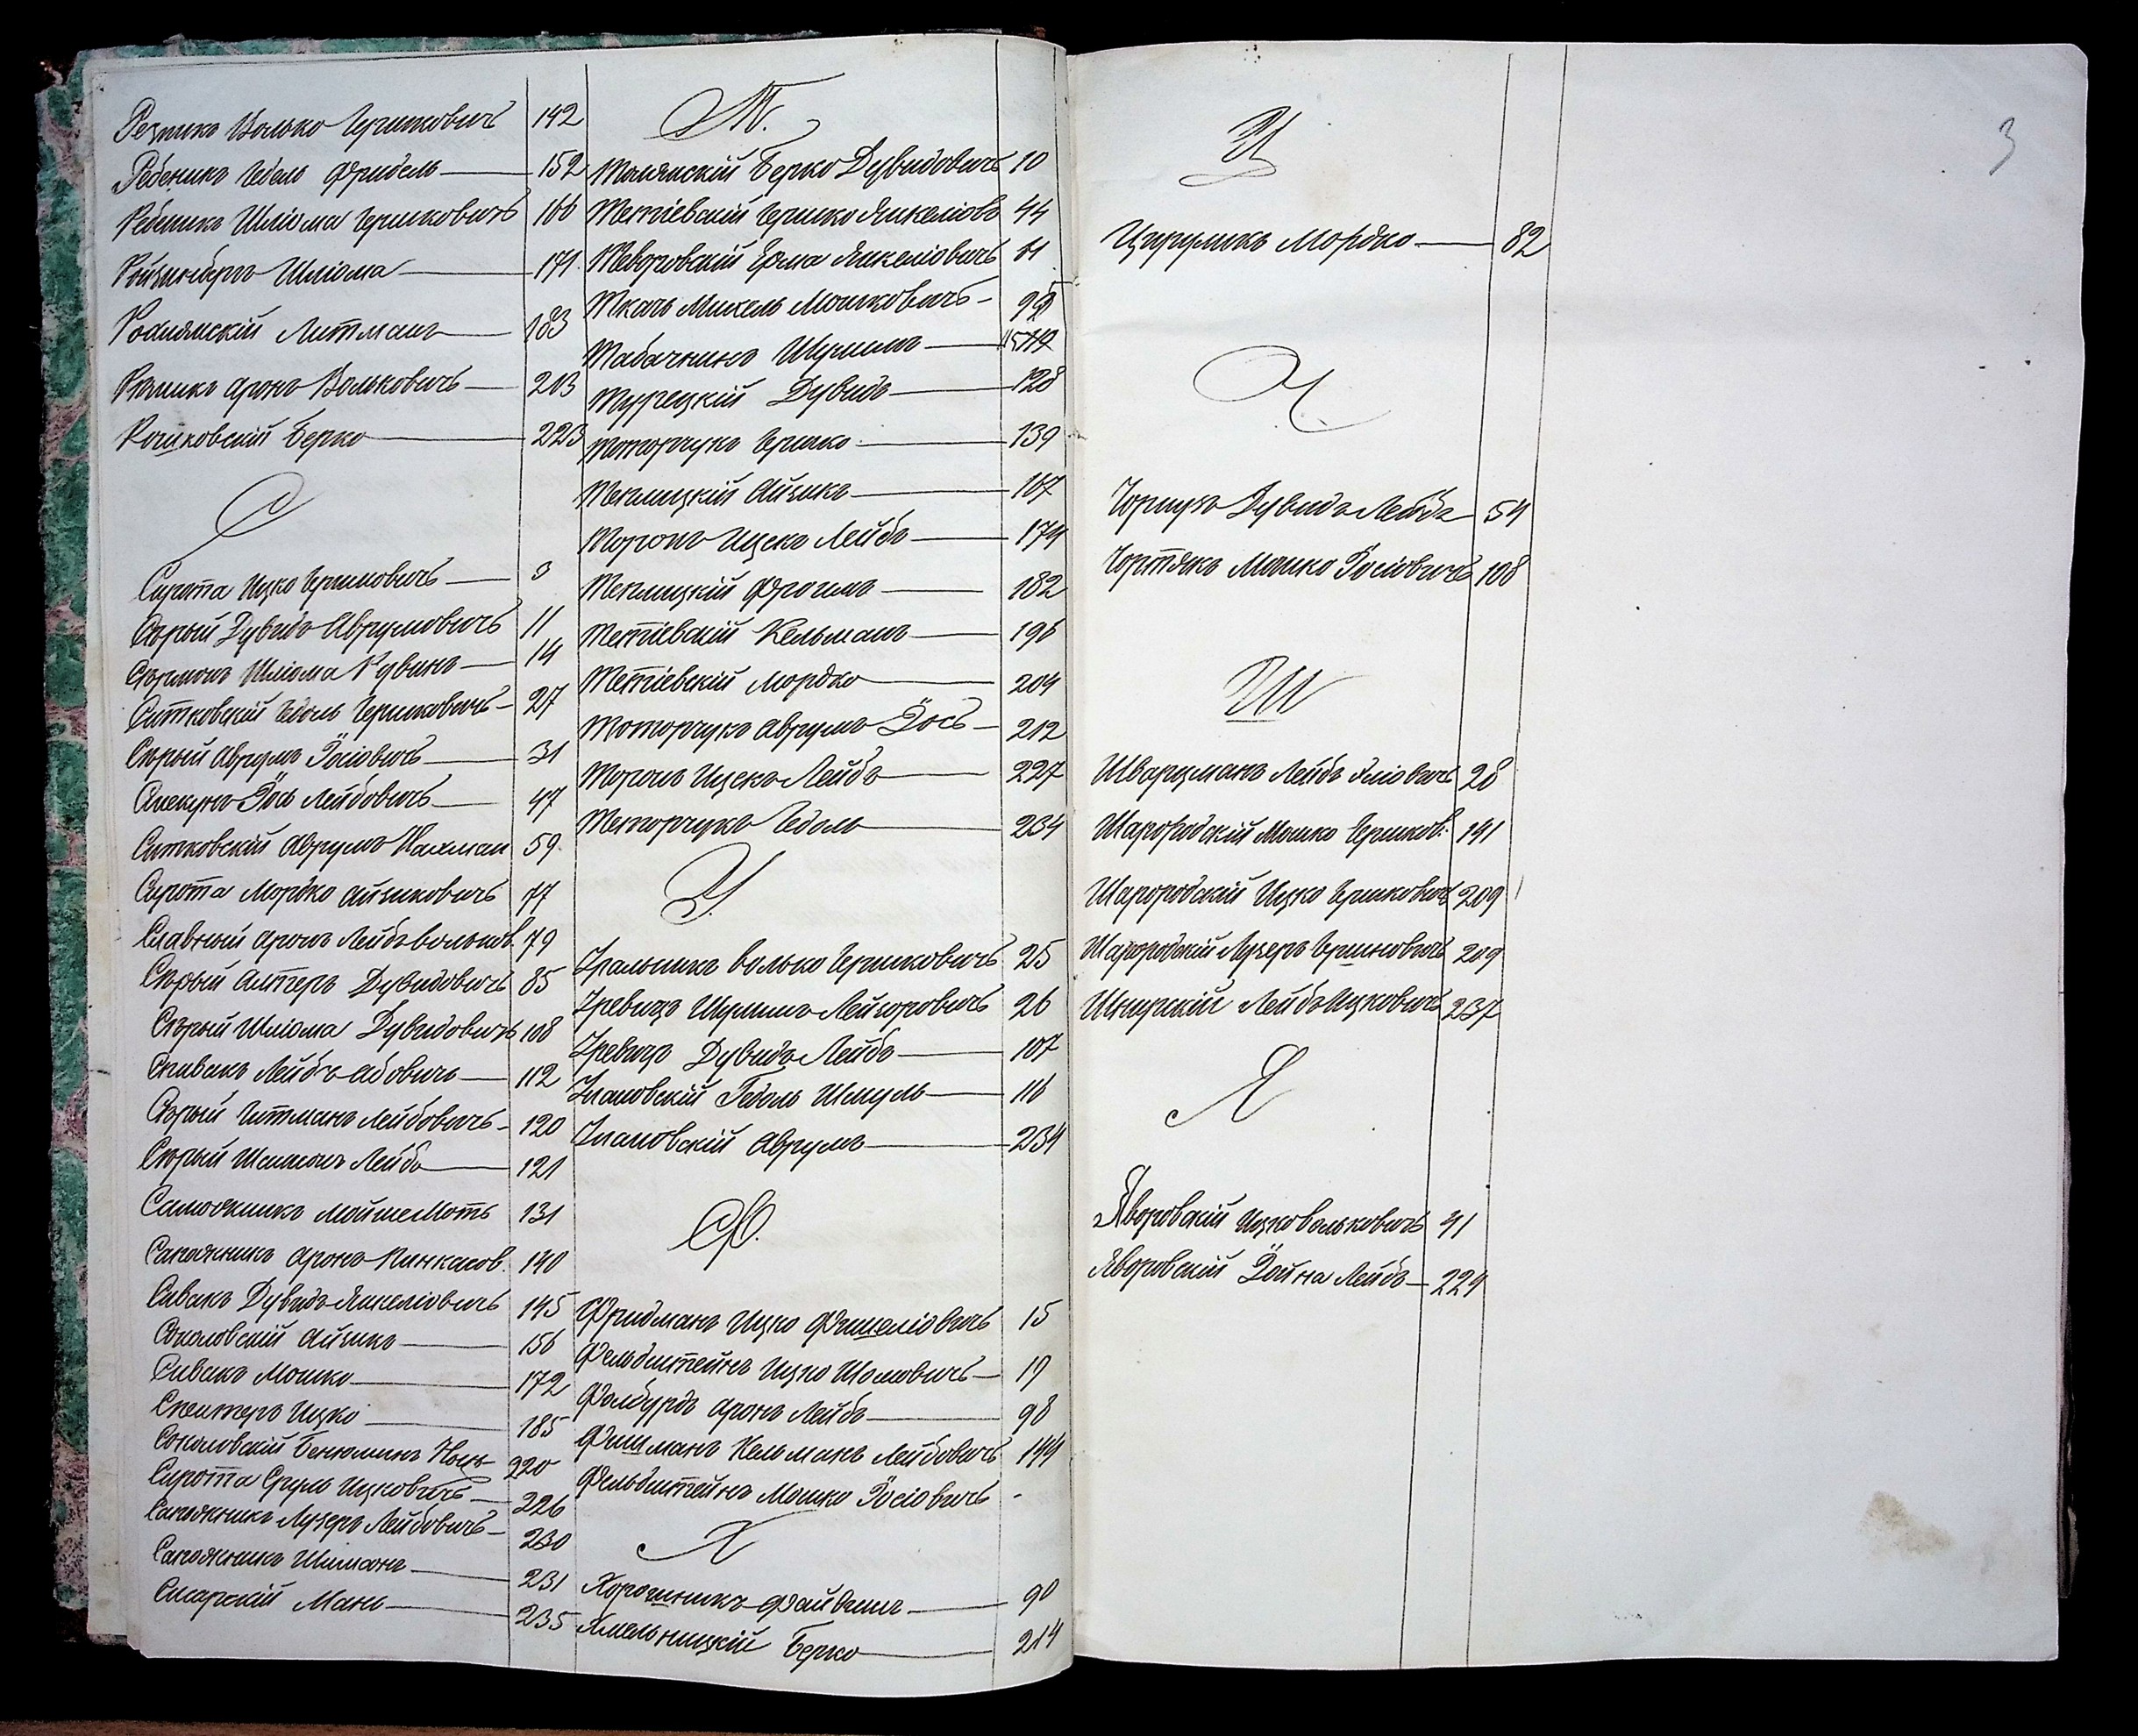 Резникъ Волько Гершковичъ 142
Ребеникъ Гедель Фридель 152
Ребеникъ Шліома Гершковичъ 166
Ройзинбергъ Шліома 171
Рашамскій Литманъ 183
Резникъ Аронъ Вольковичъ 213
Рошковскій Берко 223
С
Сирота Ицко Гершковичъ
Сѣрый Дувидъ Аврумовичъ 11
Шліома Рувинъ 14
Ситковскій Гедаль Гершковичъ 27
Сѣрый Аврумъ Іосіовичъ 31
Іось Лейбовичъ 47
Ситковскій Аврумъ Нахман 59
Сирота Мордко Айзиковичъ 77
Славный Аронъ Лейбъ Вольков. 79
Сѣрый Алтеръ Дувидовичъ 85
Сѣрый Шліома Дувидовичъ 108
Спивакъ Лейбъ Абовичъ 112
Сѣрый Гитманъ Лейбовичъ 120
Сѣрый Шимонъ Лейбъ 121
Сапожникъ Мойше Мотъ 131
Сапожникъ Аронъ Пинкасов. 140
Сивакъ Дувидъ Янкеліовичъ 145
Соколовскій Айзикъ 156
Сивакъ Мошко 172
Спекторъ Ицко 185
Соколовскій Беніоминъ 220
Сирота Сруль Ицковичъ 226
Сапожникъ Лузеръ Лейбовичъ 230
Сапожникъ Шимонъ 231
Сигарскій Мань 235
Т.
Тальянскій Берко Дувидовичъ 10
Тетіевскій Гершко Янкеліовъ 44
Теворовскій Ерма Янкеліовичъ 61
Ткачъ Михель Мошковичъ
Табачникъ Шулимъ
Турецкій Дувидъ 128
Топорчукъ Гершко 139
Теплицкій Айзикъ 167
Торонъ Ицекъ Лейбъ 174
Теплицкій Фроимъ 182
Тетіевскій Кельманъ 196
Тетіевскій Мордко 204
Топорчукъ Аврумъ Іось 212
Торонъ Ицекъ Лейбъ 227
Топорчукъ Гедаль 234
У.
Уральникъ Волько Гершковичъ 25
Уревичъ Шулимъ Лейзоровичъ 26
Уревичъ Дувидъ Лейбъ 107
Улановскій Гедаль Шмуль 116
Улановскій Аврумъ 234
Ф.
Фридманъ Ицко Фишеліовичъ 15
Фельдштейнъ Ицко Шомовичъ 19
Фалбурдъ Аронъ Лейбъ 98
Фишманъ Кельманъ Лейбовичъ 144
Фельдштейнъ Мошко Іосіовичъ -
Х
Хорошникъ Файвишъ 90
Хмельницкій Берко 214
3
Ц
Цирульникъ Мордко 82
Ч.
Чорнухъ Дувидъ Лейбъ 54
Чортякъ Мошко Іосіовичъ 108
Ш
Шварцманъ Лейбъ Эліовичъ 28
Шарогродскій Мошко Гершков. 191
Шарогродскій Ицко Гершковичъ 209
Шарогродскій Лузеръ Гершковичъ 209
Шнирскій Лейбъ Ицковичъ 237
Я
Яворовскій Ицко Вольковичъ 41
Яворовскій Іойна Лейбъ 229